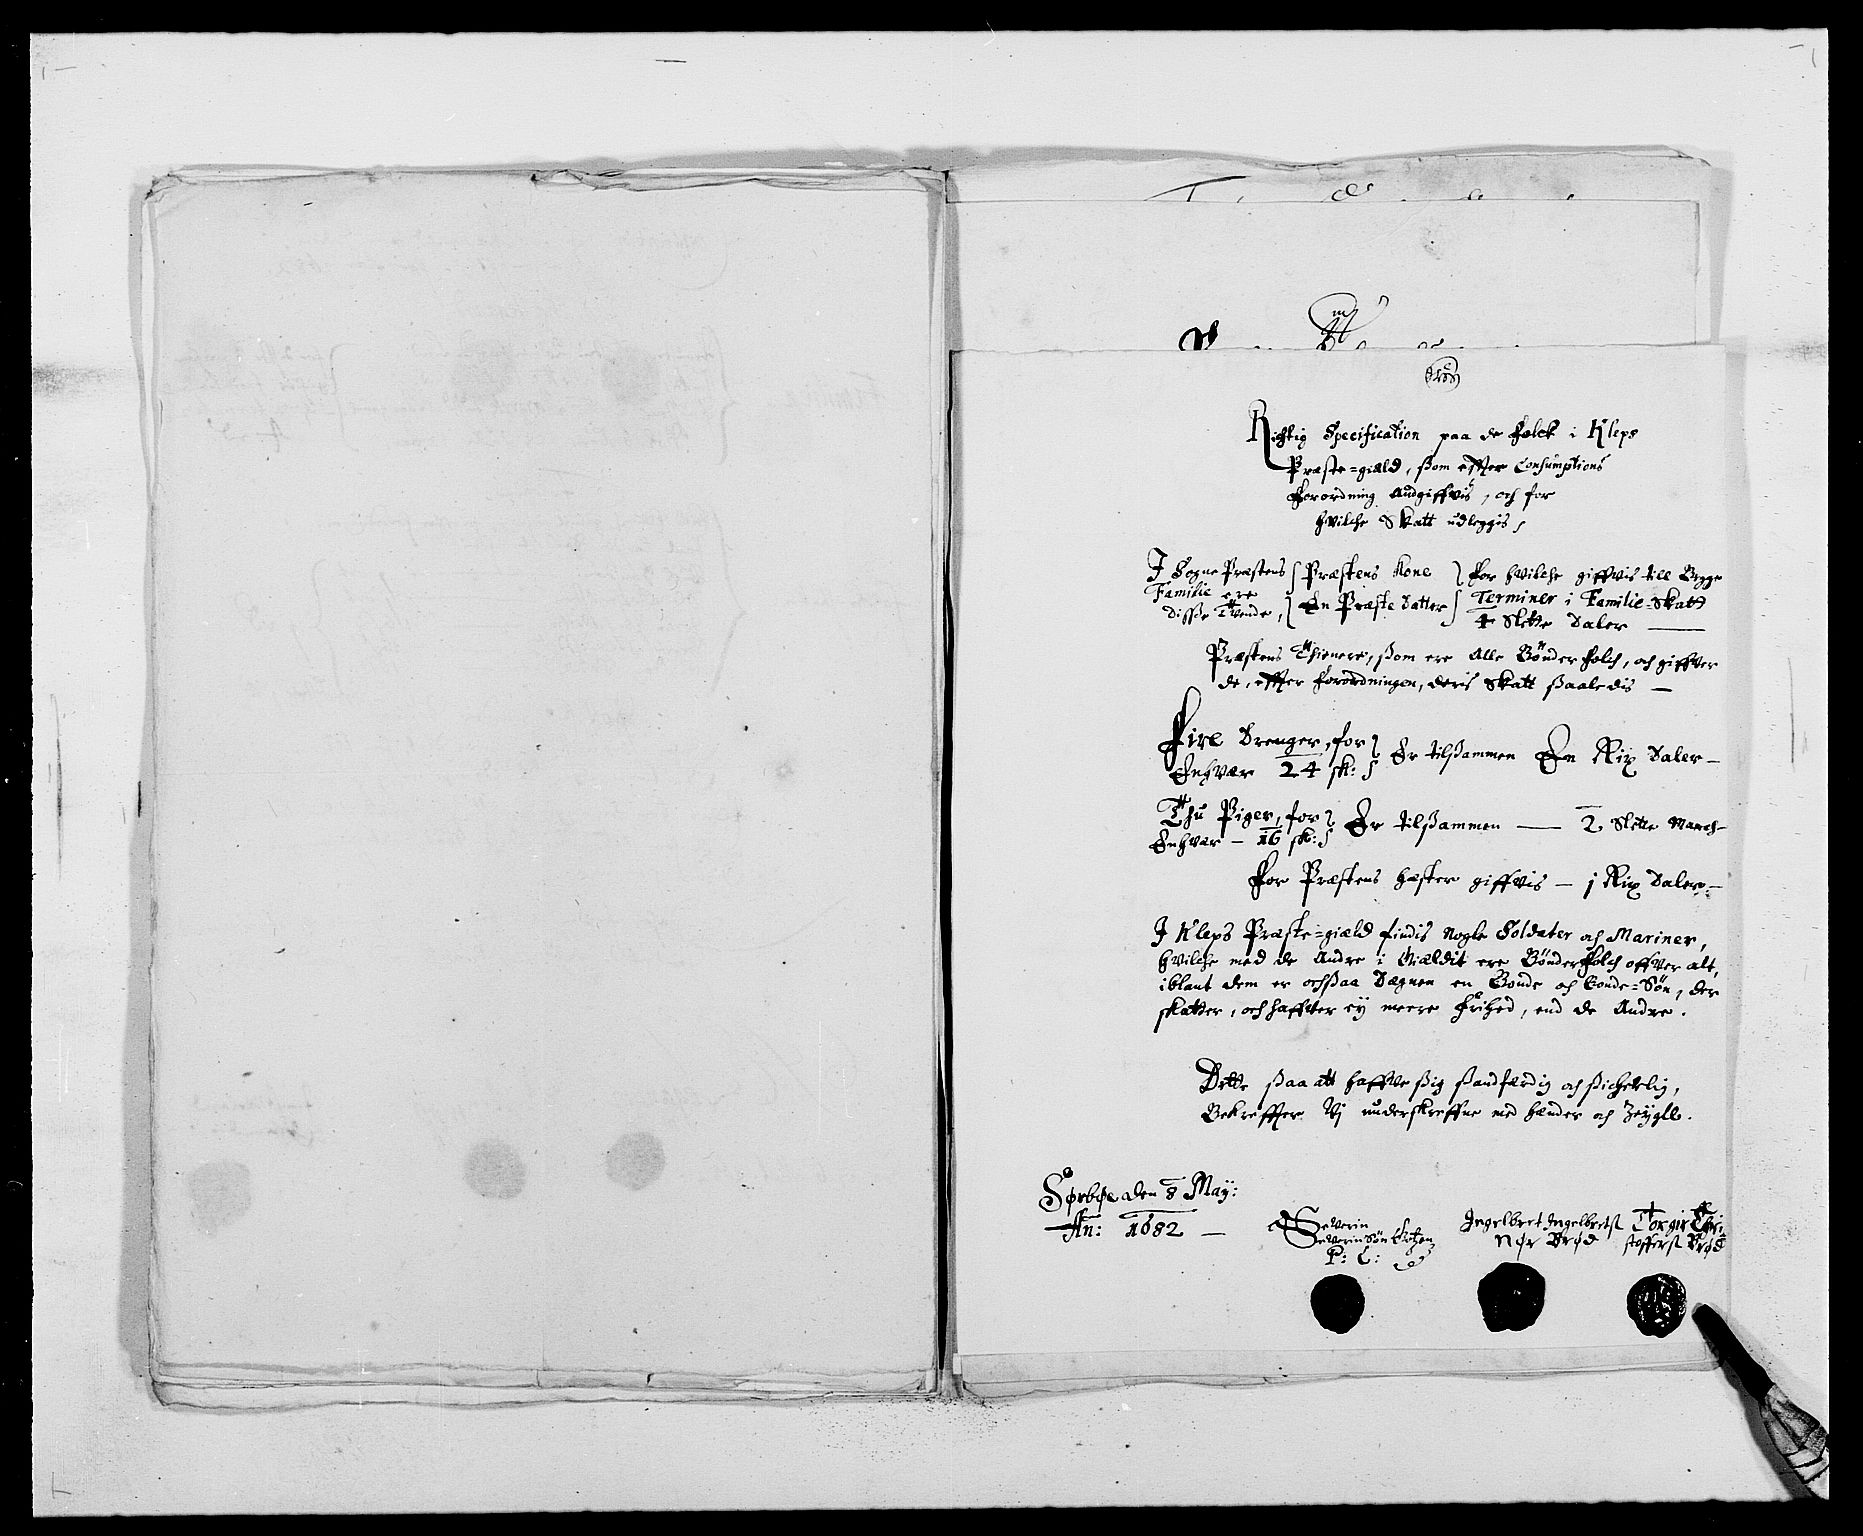 Richtig Specification paa de Folck i Kleps
Præste=giæld, ßom effter Consumptions
Forordning Andgiffvis, och for
hvilche Skatt udleggis
I Sogne Præstens Familie ere disße Tvende,
Præstens Kone
En Præste Datter
For hvilche giffvis till Begge
Terminer i Familie=Skatt
4 Slette Daler
Præstens Thienere, ßom ere Alle Bönder Folch, och giffver
de, effter Forordningen, deris Skatt ßaaledis
Fire Drenger, for
Enhvær 24 sk:
Er tilßammen En Rix Daler
Thu Piger, for
Enhvær 16 sk:
Er tilßammen 2 Slette March
For Præstens hæster giffvis 1 Rix Daler
I Kleps Præste=giæld findis Nogle Soldater och Mariner,
hvilche med de Andre i Giældit ere BönderFolch offver alt,
iblant dem er ochßaa Dægnen en Bonde och Bonde=Søn, der
skatter, och haffver ey meere Frihed, end de Andre.
Dette ßaa att haffve ßig ßandfærdig och ßicherlig,
Bekreffter Vj underskreffne med hænder och Zeygll.
Sørbøe den 8 May:
An: 1682
Severin
SeverinSøn
P: C:
Ingelbret Ingelbrets
Nør Brød
Torgir Chri
stoffers Brød